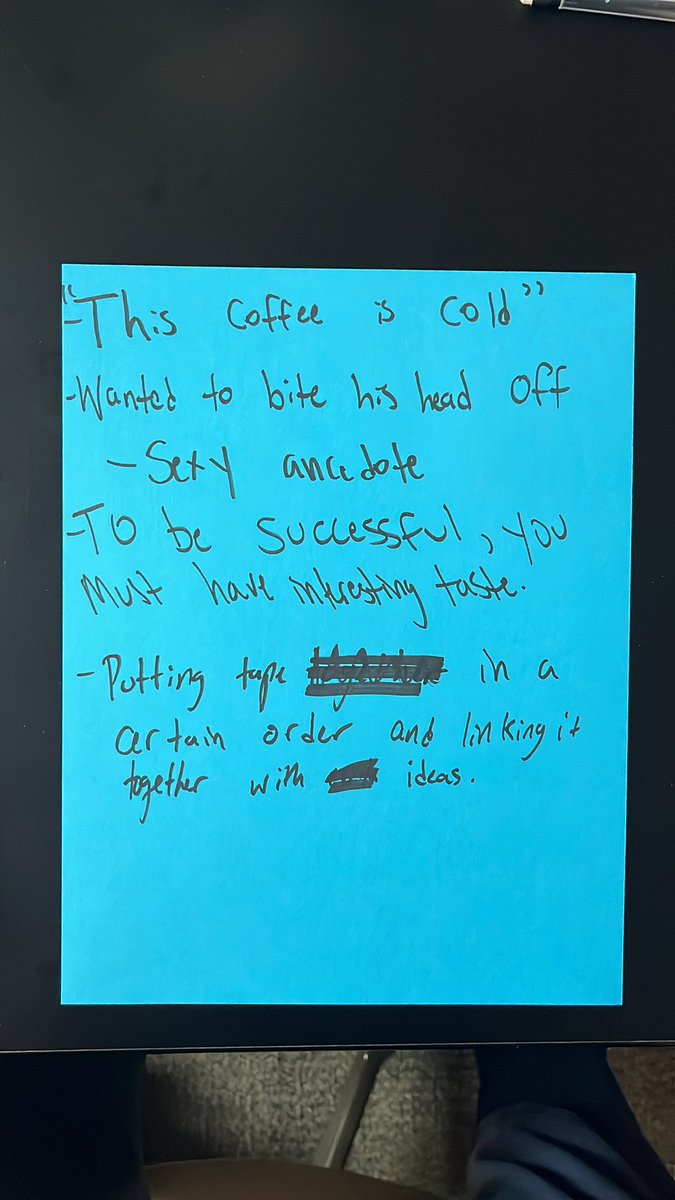 -"This Coffee is Cold"
-Wanted to bite his head off
-Sexy anecdote
-To be successful, you
must have interesting taste.
-Putting tape in a
certain order and linking it
together with ideas.